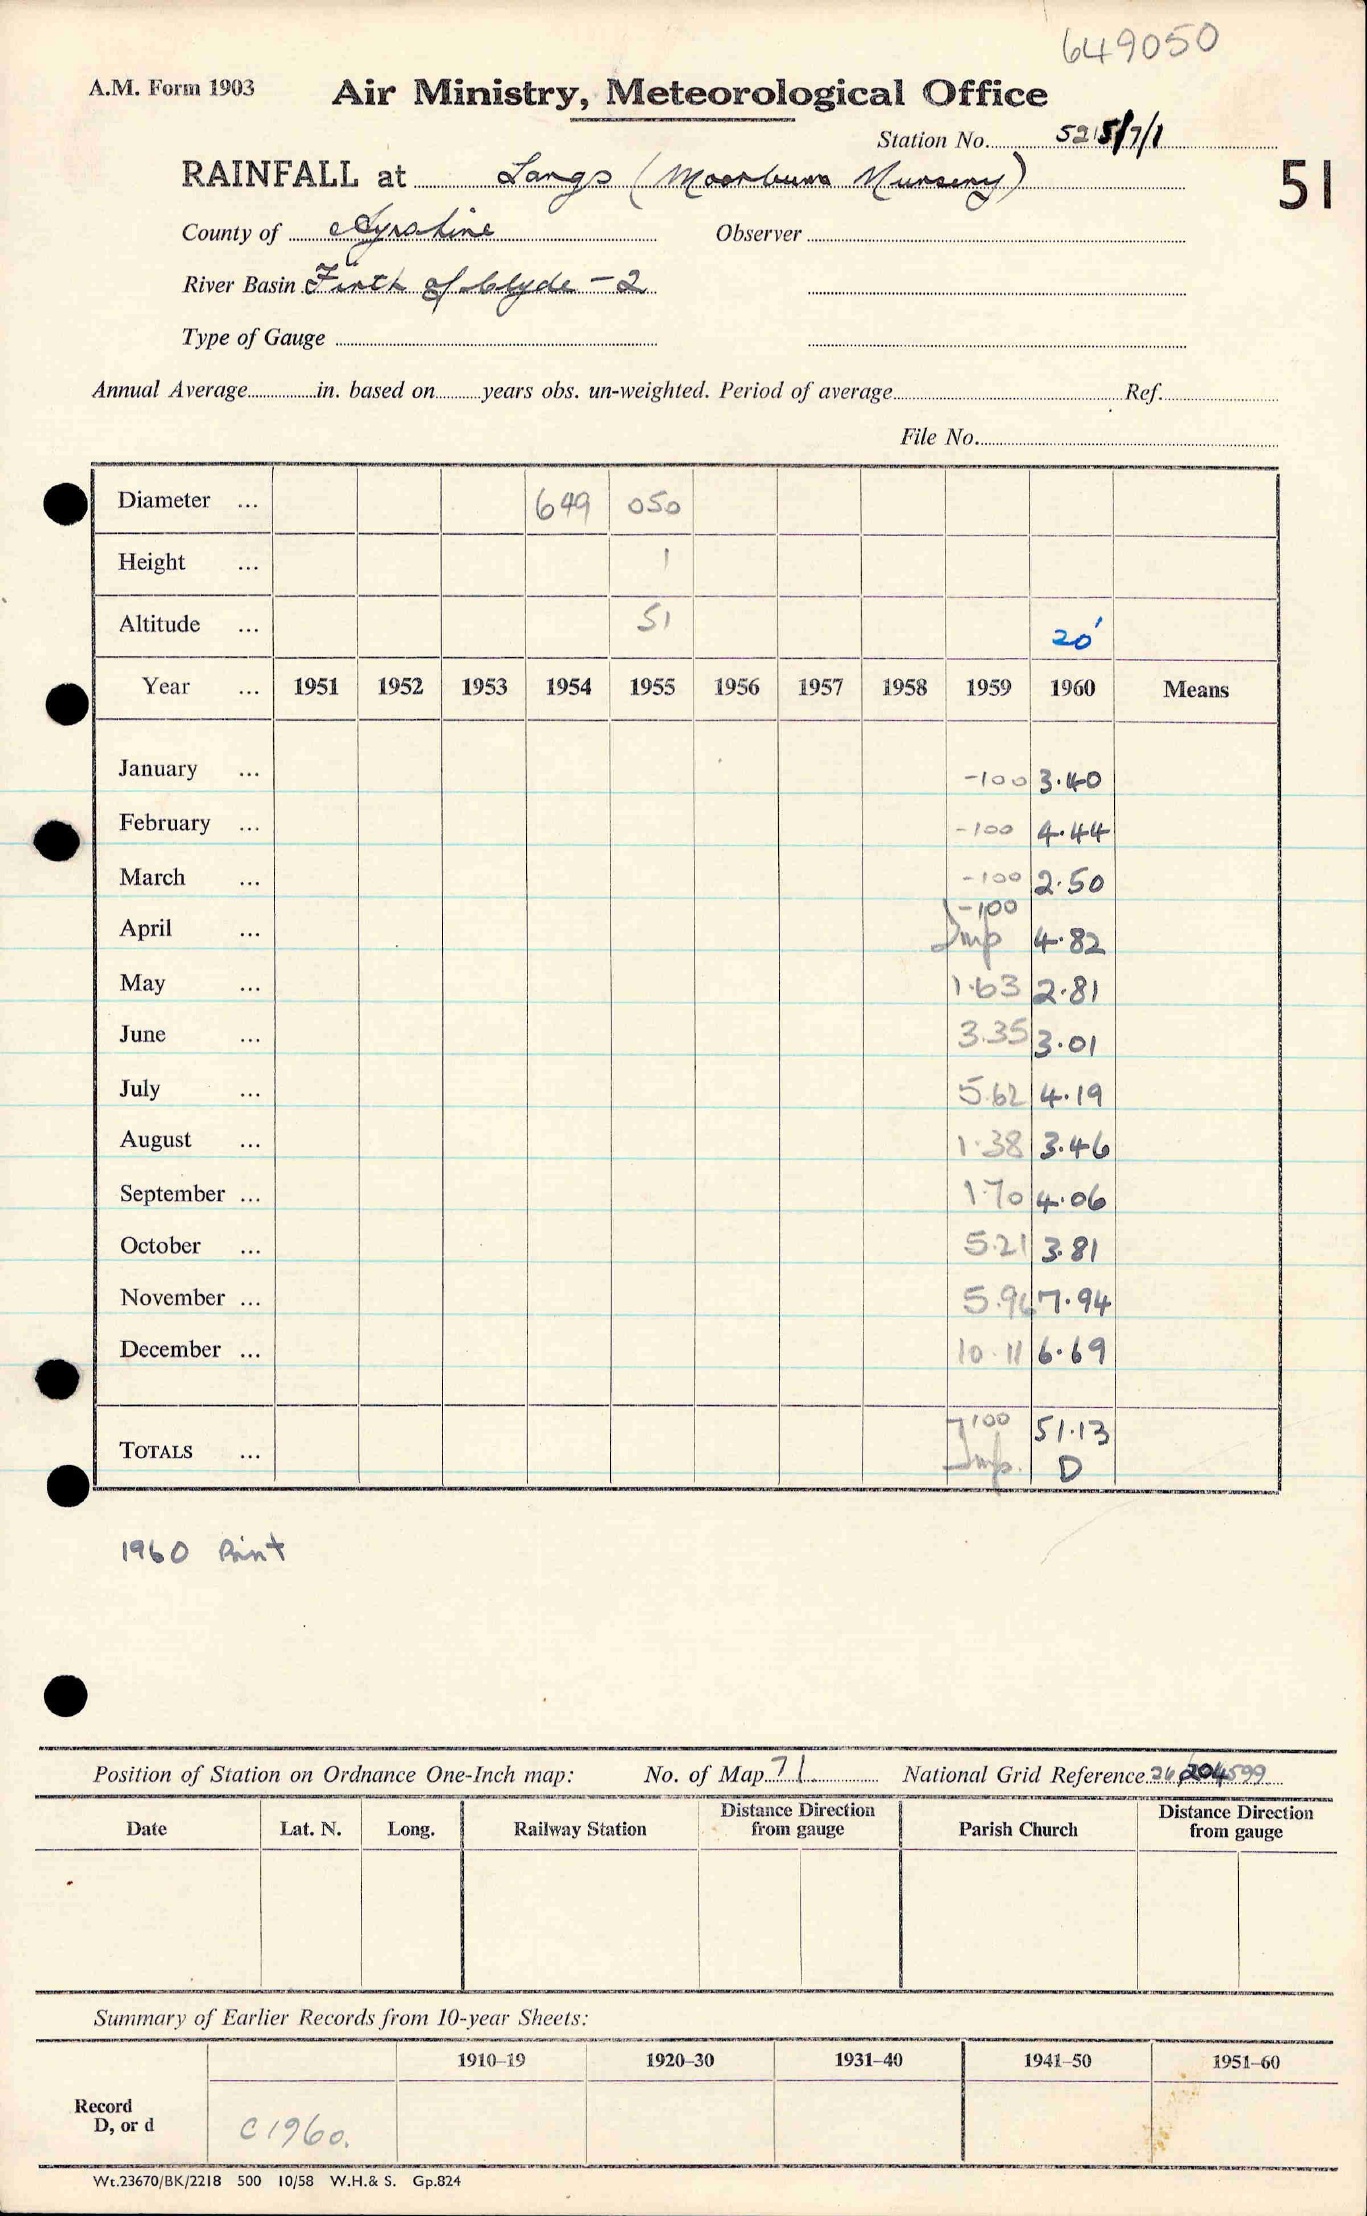 649050
A.M. Form 1903 Air Ministry, Meteorological Office
Station No. 5215/7/1
51
RAINFALL at Largs (Moorburn Nursery)
County of Ayrshire Observer
River Basin Firth of Clyde - 2
Type of Gauge
Annual Average in. based on years obs. un-weighted. Period of average Ref.
File No.
Diameter ... 649 050
Height ... 1
Altitude ... 51 20'
Year ... 1951 1952 1953 1954 1955 1956 1957 1958 1959 1960 Means
January ... -100 3.40
February ... -100 4.44
March ... -100 2.50
April ... -100 Imp 4.82
May ... 1.63 2.81
June ... 3.35 3.01
July ... 5.62 4.19
August ... 1.38 3.46
September ... 1.70 4.06
October ... 5.21 3.81
November ... 5.96 7.94
December ... 10.11 6.69
TOTALS ... -100 Imp. 51.13 D
1960 Print
Position of Station on Ordnance One-Inch map: No. of Map 71 National Grid Reference 26 204599
Date Lat. N. Long. Railway Station Distance Direction from gauge Parish Church Distance Direction from gauge
Summary of Earlier Records from 10-year Sheets:
1910–19 1920–30 1931–40 1941–50 1951–60
Record
D, or d C1960.
Wt.23670/BK/2218 500 10/58 W.H.& S. Gp.824